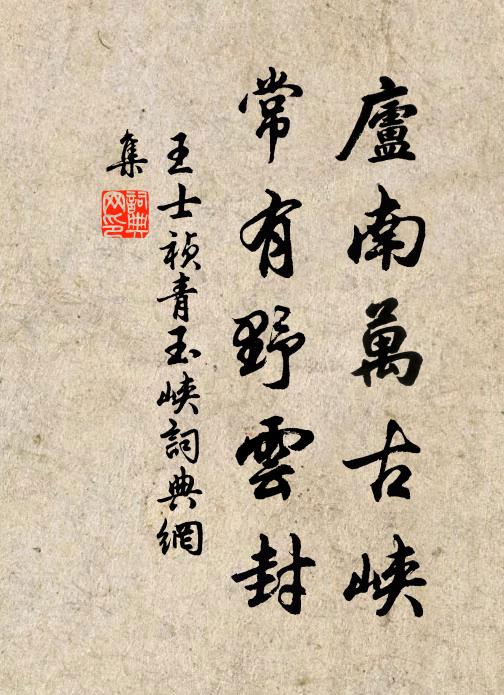 廬南萬古峽
常有野雲封
王士禎青玉峽詞典網
集
詞典
网印